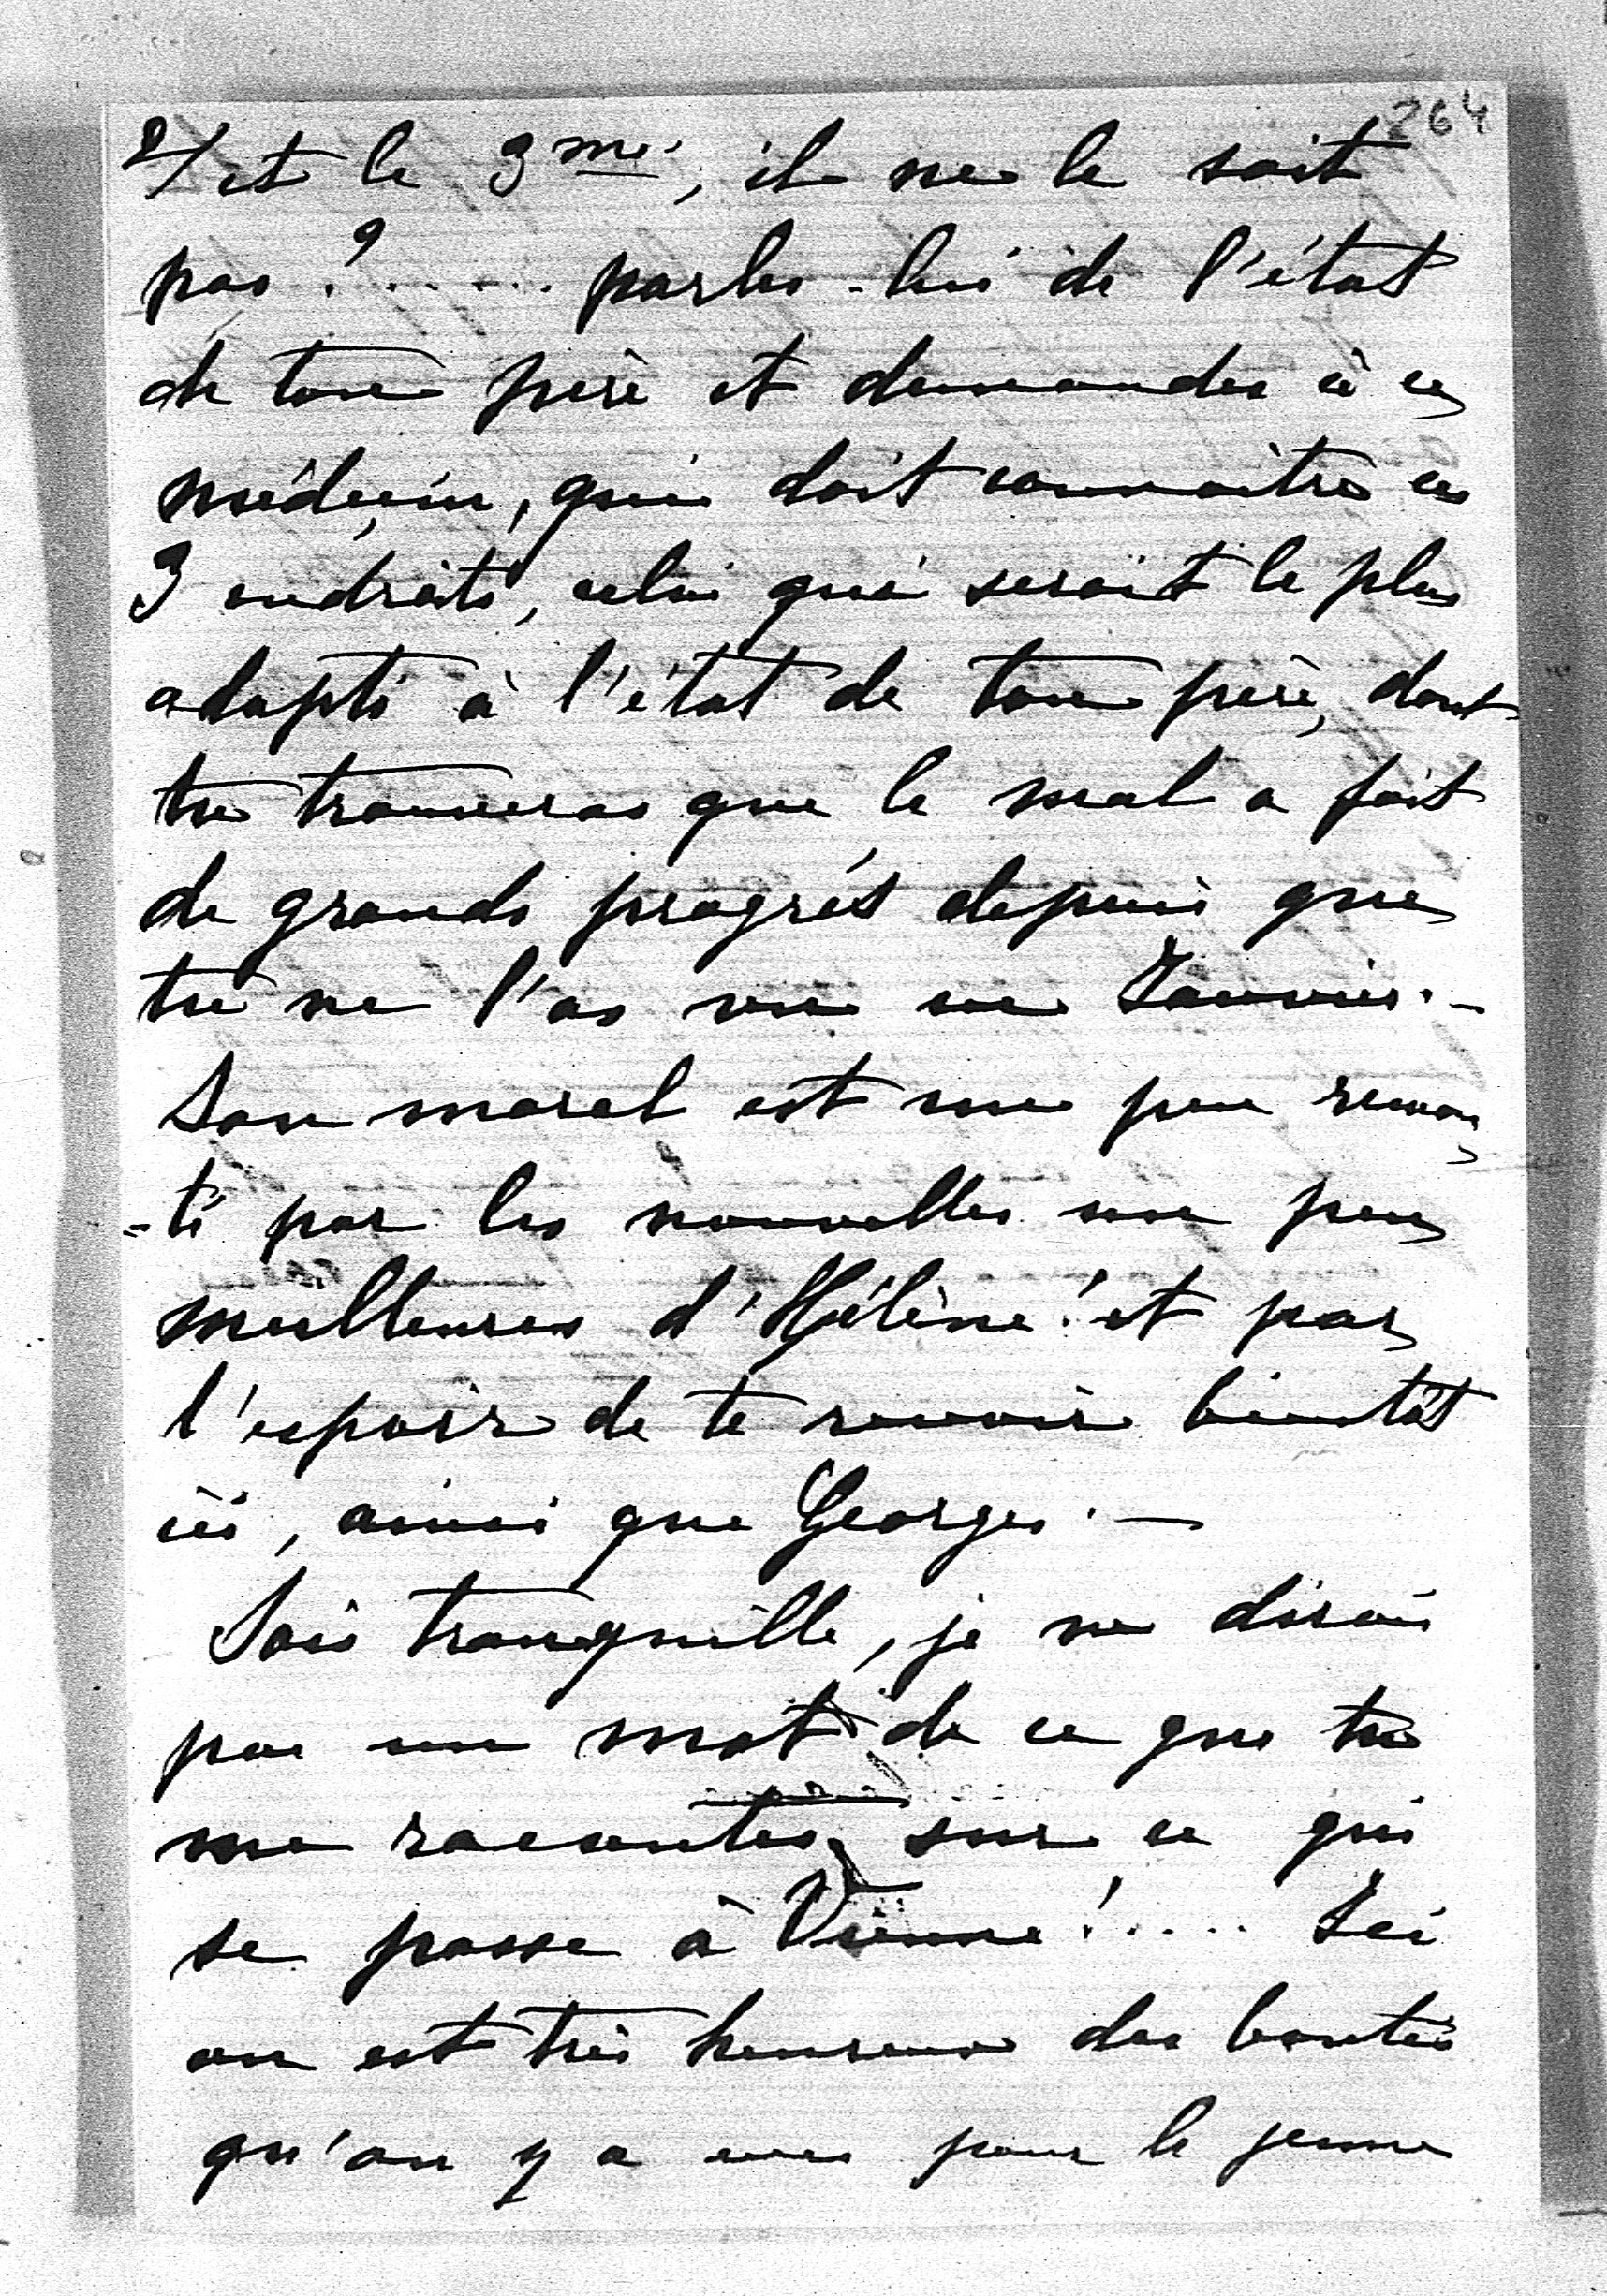 264
2/ et le 3me, il ne le sait
pas ?...... parles-lui de l'état
de ton père et demandes à ce
médecin, qui doit connaître ces
3 endroits, celui qui serait le plus
adapté à l'état de ton père, dont
tu trouveras que le mal a fait
de grands progrés depuis que
tu ne l'as vu en Janvier. —
Son moral est un peu remon
-té par les nouvelles un peu
meilleures d'Hélène! et par
l'espoir de te revoir bientôt
ici, ainsi que Georges. —
Sois tranquille, je ne dirai
pas un mot de ce que tu
me racontes, sur ce qui
se passe à Vienne!..... Ici
on est très heureux des bontés
qu'on y a eues pour le jeune